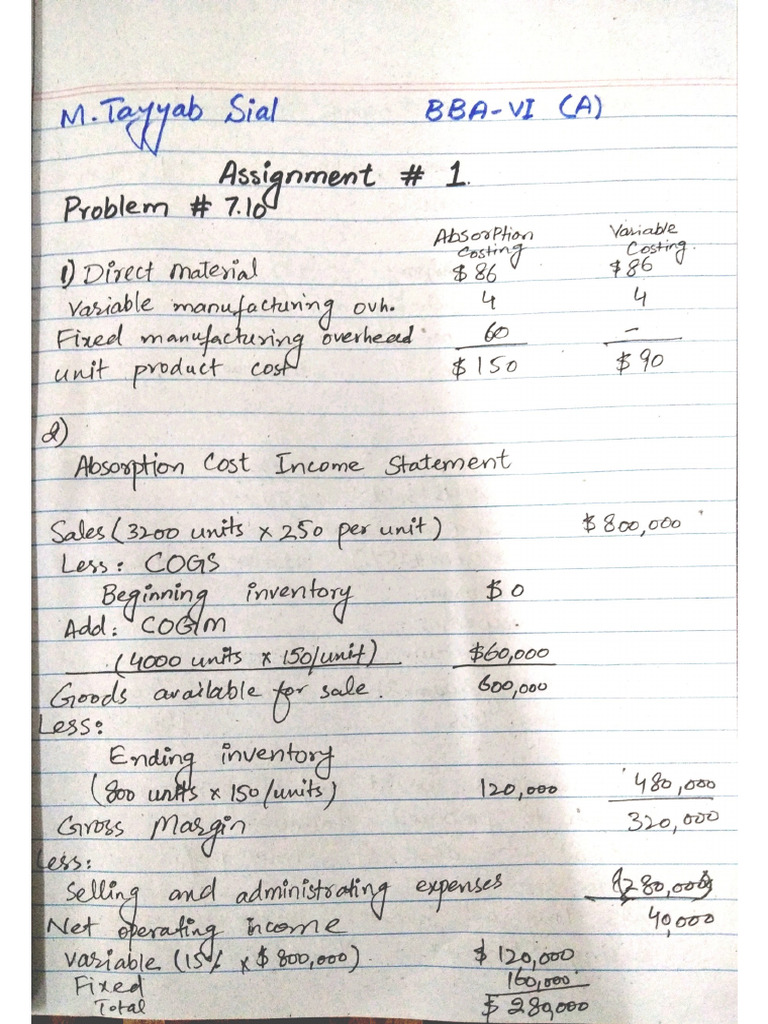 M. Tayyab Sial BBA-VI (A)
Assignment # 1.
Problem # 7.10
Absorption Costing Variable Costing.
1) Direct material $86 $86
Variable manufacturing ovh. 4 4
Fixed manufacturing overhead 60 -
unit product cost $150 $90
2)
Absorption Cost Income Statement
Sales (3200 units x 250 per unit) $800,000
Less: COGS
Beginning inventory $0
Add: COGM
(4000 units x 150/unit) $60,000
Goods available for sale. 600,000
Less:
Ending inventory
(800 units x 150/units) 120,000 480,000
Gross Margin 320,000
Less:
Selling and administrating expenses (280,000)
Net operating income 40,000
Variable (15% x $800,000) $120,000
Fixed 160,000
Total $280,000